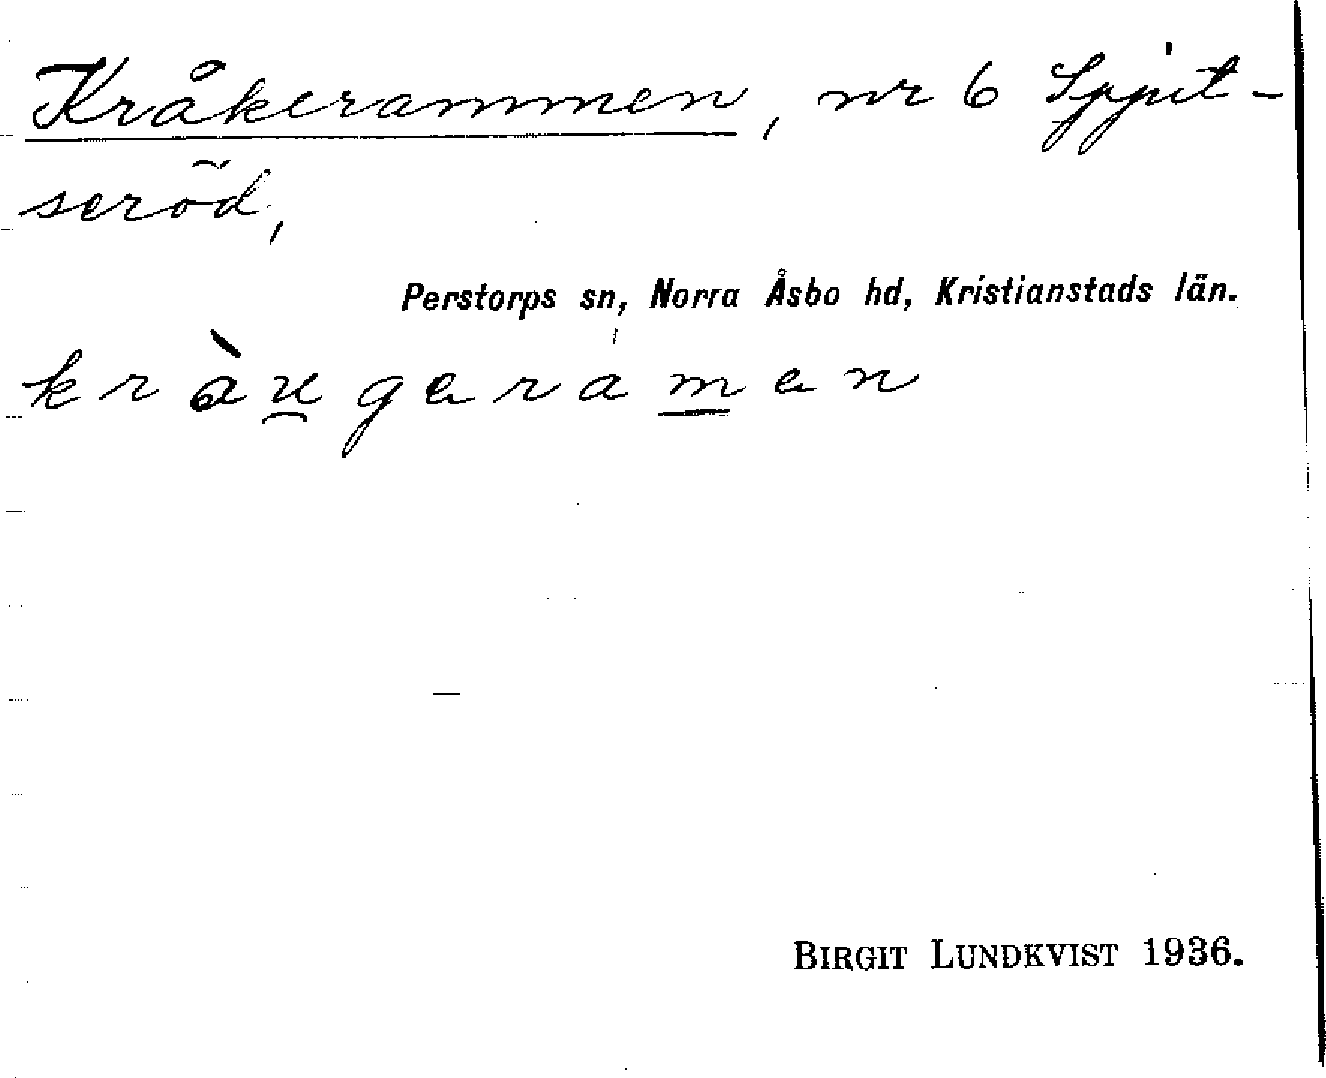 Kråkerammen, nr 6 Spjut-
seröd,
Perstorps sn, Norra Åsbo hd, Kristianstads län.
kràu̯geram̲en
BIRGIT LUNDKVIST 1936.